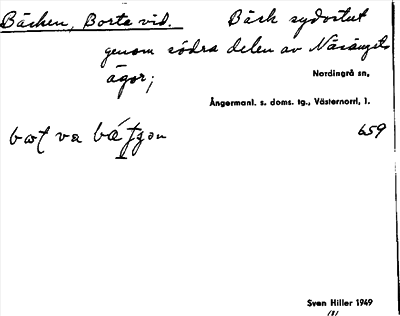 Bäcken, Borta vid. Bäck sydostut
genom södra delen av Näsängets
ägor;
Nordingrå sn,
Ångermanl. s. doms. tg., Västernorrl. l.
659
va
Sven Hiller 1949